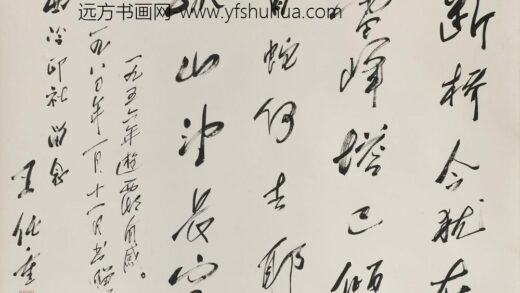 远方书画网 www.yfshuhua.com
断桥今犹在
峰塔已倾
蛇何去耶
山沖长
一九五六年遊西湖有感。
一九八〇年一月十一日书赠
西泠印社 留念
王任重